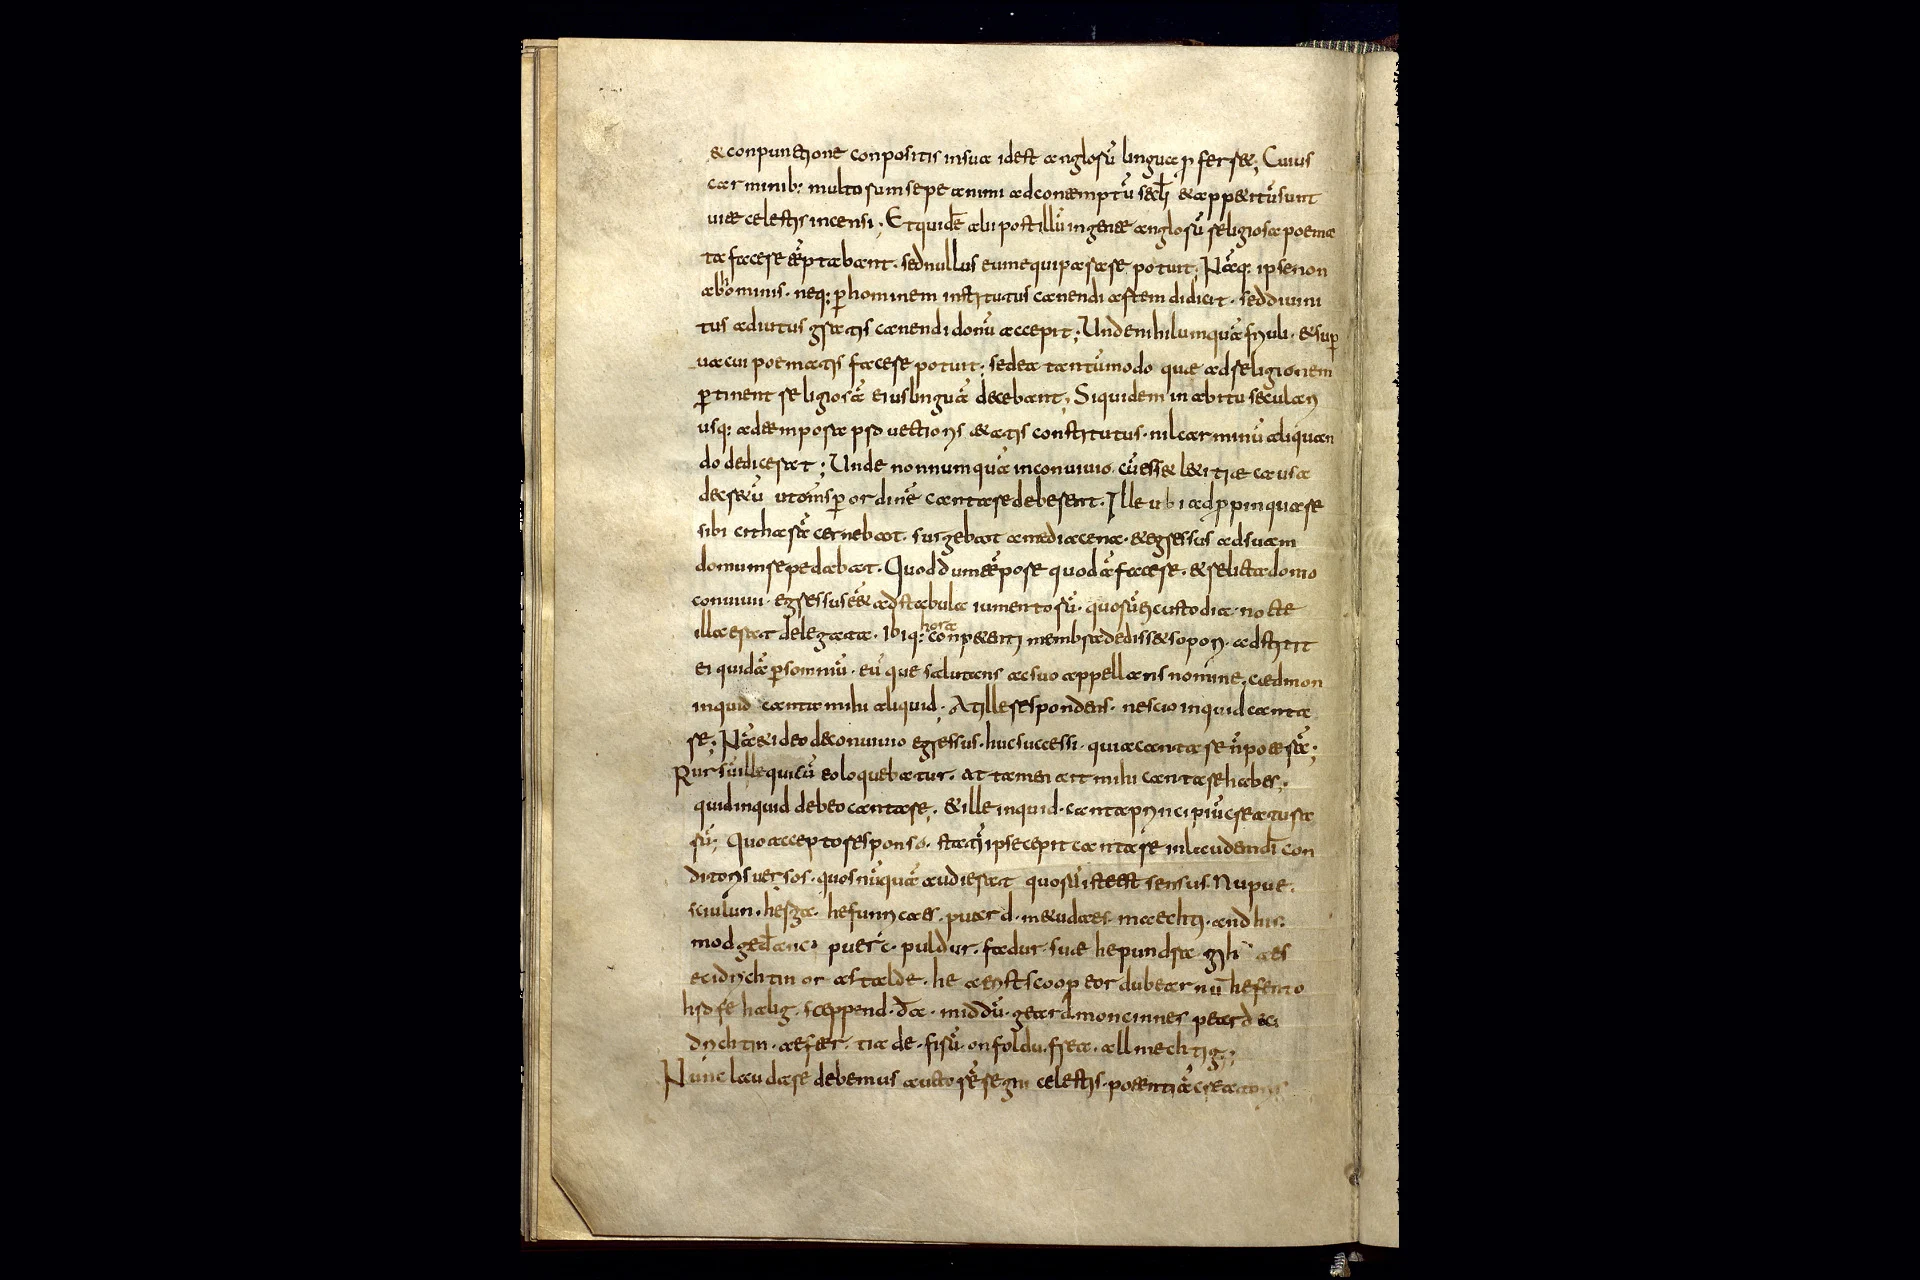 & conpunctione conpositis in sua id est anglorū lingua pferret; Cuius
carminib: multorum sepe animi ad contemptū secl̄i & appetitū sunt
uitae celestis incensi. Et quidē alii post illū in gente anglorū religiosa poema
ta facere tēptabant. sed nullus eum equiparare potuit; Nāq: ipse non
ab hominis. neq: p hominem institutus canendi artem didicit. sed diuini
tus adiutus gratis canendi donū accepit; Unde nihil umquā friuoli. & sup
uacui poematis facere potuit; sed ea tantūmodo quae ad religionem
ptinent religiosā eius linguā decebant; Siquidem in abitu seculari
usq: ad tempora prouectioris aetatis constitutus. nil carminū aliquan
do dedicerat; Unde nonnumquā in conuiuio. cū esset laetitiae causa
decretū ut om̄s p ordinē cantare deberent. Ille ubi adppinquare
sibi citharā cernebat. surgebat a media cena. & egressus ad suam
domum repedabat. Quod dum tēpore quodā faceret. & relicta domo
conuiui. egressus eēt ad stabula iumentorū. quorū ei custodia. nocte
illa erat delegata. Ibiq: hora conpetenti membra dedisset sopori. adstitit
ei quidā p somniū. eū que salutans ac suo appellans nomine. caedmon
inquid canta mihi aliquid. At ille respondens. nescio inquid canta
re; Nā & ideo de conuiuio egressus. huc successi. quia cantare n̄ poterā;
Rursū ille qui cū eo loquebatur. attamen ait mihi cantare habes;
quid inquid debeo cantare. & ille inquid. canta principiū creatura
rū; Quo accepto responso. statī ipse cepit cantare in laudem dī con
ditoris uersos. quos nūquā audierat quorū iste est sensus. Nu pue.
sciulun. herga. hefunricaes. puard. metudaes. maechti. and his.
modgedanc. puerc. puldur. fadur. suae he pundra gihuaes
eci drichtin or astalde. he aerist scoop eordu bearnū hefen to
hrofe halig. sceppend. đa. middū. geard moncinnes peard eci
drichtin. aefter. tiade. firū. on foldu. frea. allmechtig;
Nunc laudare debemus auctorē regni celestis. potentiā creatoris